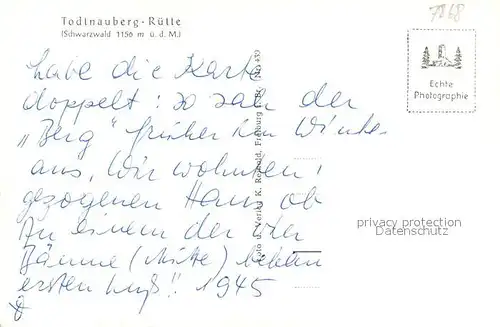 Todtnauberg - Rütte
(Schwarzwald 1156 m ü. d. M.)
7868
Echte
Photographie
habe die Karte
doppelt: so sah der
„Berg" früher im Winter
aus. Wir wohnten
gezogenen Haus ob
An einem der vier
Bäume (Mitte) bekam
ersten Kuß!! 1945
Foto u. Verlag K. Freiburg i. Br. No 439
privacy protection
Datenschutz